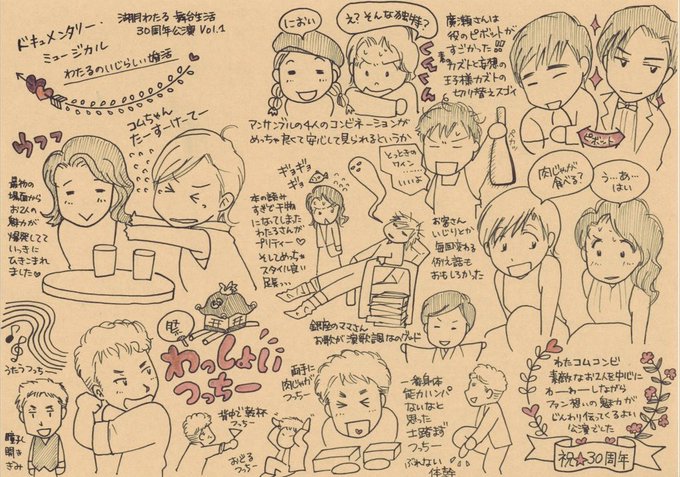 湖月わたる舞台生活
30周年公演 Vol.1
ドキュメンタリー・
ミュージカル
わたるのいじらしい婚活
コムちゃん
たーすーけーてー
ウフフ
最初の
場面から
お2人の
魅力が
爆発してて
いっきに
ひきこまれ
ました♡
におい
え?そんな独特?
くんくん
アンサンブルの4人のコンビネーションが
めっちゃ良くて安心して見られるというか
廣瀬さんは
役のピボットが
すごかった!!!
素カズトと妄想の
王子様カズトの
切り替えスゴイ
ピボット
とっときの
ワイン……
……いいよ
ギョギョギョ
本の読み
すぎで干物
になってしまう
わたるさんが
プリティー♡
そしてめっちゃ
スタイル良い
足長っ…
お宮さん
いじりとか
毎回変わる
例え話も
おもしろかった
肉じゃが
食べる?
う…あ…
はい
銀座のママさん
お歌が演歌調なのグッド
うたうつっちー
瞳孔
開き
ぎみ
祭
わっしょい
つっちー
背中で乾杯
つっちー
おどる
つっちー
両手に
肉じゃが
つっちー
一番身体
能力ハンパ
ないなと
思った
つっちー
ぶれない
体幹
わたコムコンビ
素敵なお2人を中心に
わーーーーしながら
ファン想いの魅力が
じんわり伝ってくるよい
公演でした
祝★30周年